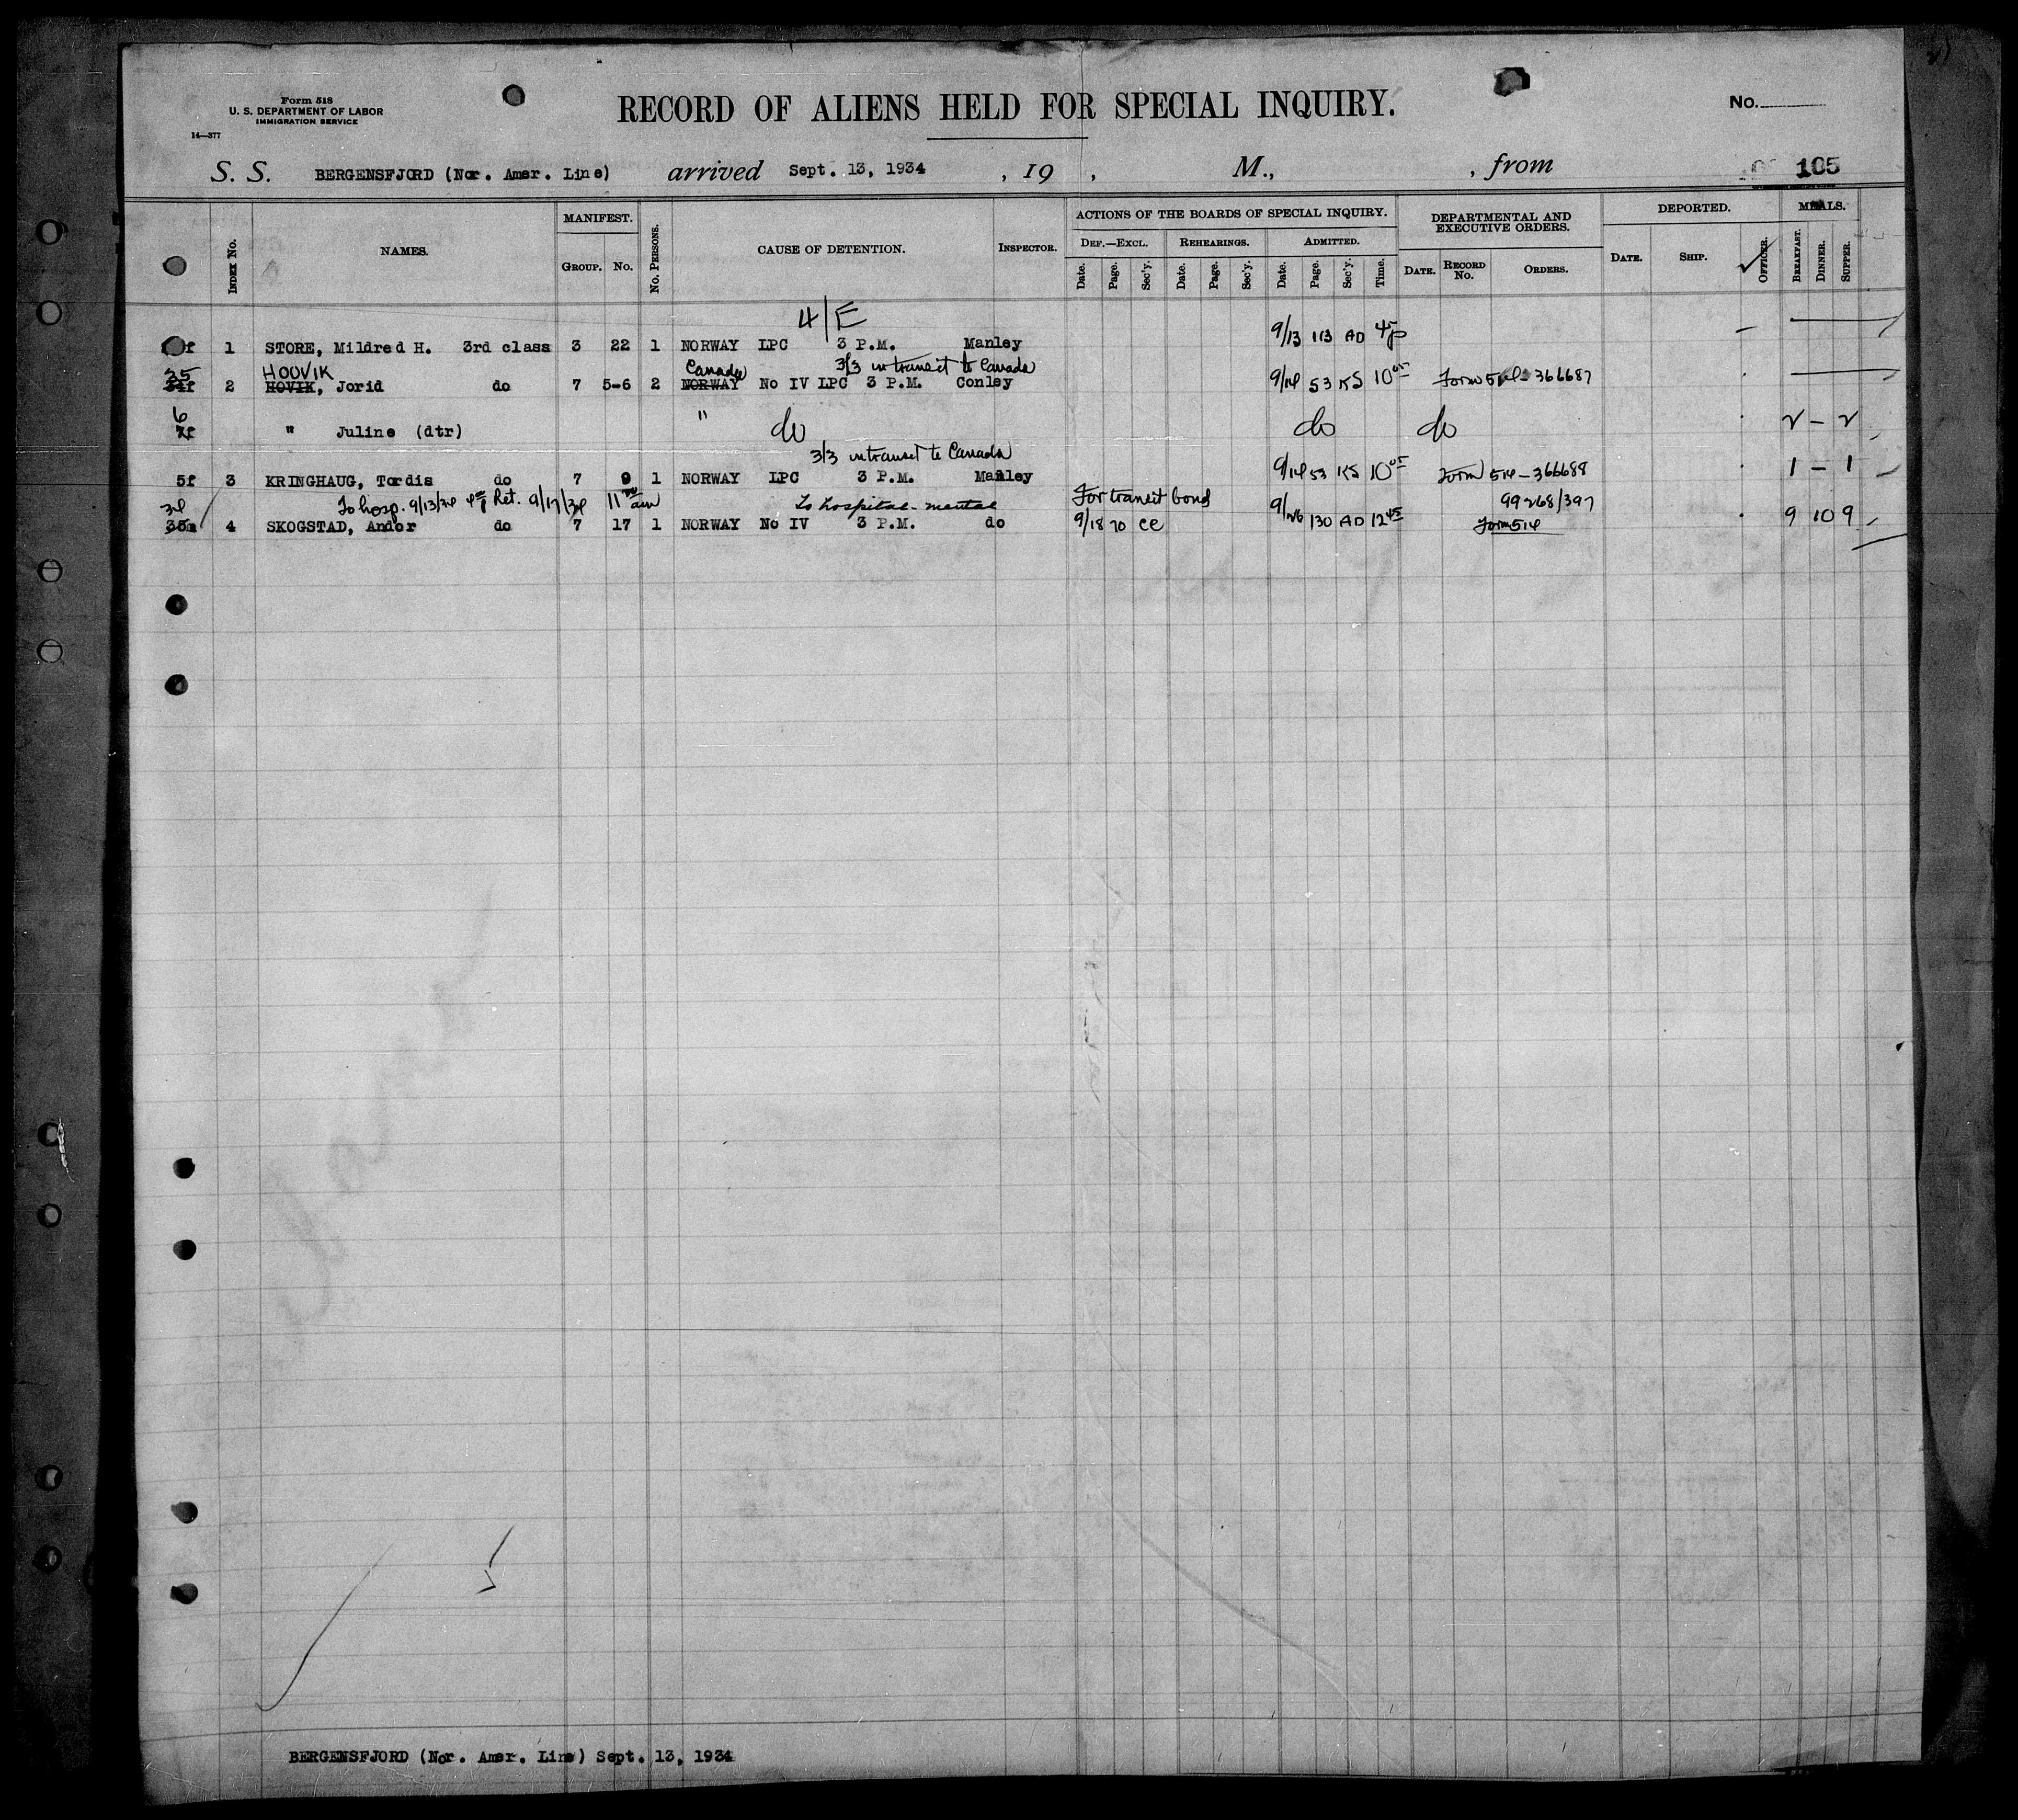 Form 518
U. S. DEPARTMENT OF LABOR
IMMIGRATION SERVICE
14—377
RECORD OF ALIENS HELD FOR SPECIAL INQUIRY.
No.
S. S. BERGENSFJORD (Nor. Amer. Line) arrived Sept. 13, 1934 , 19 , M., , from 105
INDEX No. NAMES. MANIFEST. GROUP. No. No. PERSONS. CAUSE OF DETENTION. INSPECTOR. ACTIONS OF THE BOARDS OF SPECIAL INQUIRY. DEPARTMENTAL AND EXECUTIVE ORDERS. DEPORTED. MEALS.
DEF.—EXCL. REHEARINGS. ADMITTED.
Date. Page. Sec'y. Date. Page. Sec'y. Date. Page. Sec'y. Time. DATE. RECORD No. ORDERS. DATE. SHIP. OFFICER. BREAKFAST. DINNER. SUPPER.
4/E
f 1 STORE, Mildred H. 3rd class 3 22 1 NORWAY LPC 3 P.M. Manley 9/13 113 AD 45p
35 HOOVIK Canada 3/3 in transit to Canada
f 2 HOVIK, Jorid do 7 5-6 2 NORWAY No IV LPC 3 P.M. Conley 9/14 53 KS 10 05 Form 514-366687
6
f " Juline (dtr) " do do do 2 - 2
3/3 in transit to Canada
5f 3 KRINGHAUG, Tordis do 7 9 1 NORWAY LPC 3 P.M. Manley 9/14 53 KS 10 05 Form 514-366688 1 - 1
34 To hosp. 9/13/34 Ret. 9/17/34 11 am To hospital-mental For transit bond 99268/397
35m 4 SKOGSTAD, Andor do 7 17 1 NORWAY No IV 3 P.M. do 9/18 70 CE 9/26 130 AD 12 45 Form 514 9 10 9
BERGENSFJORD (Nor. Amer. Line) Sept. 13, 1934